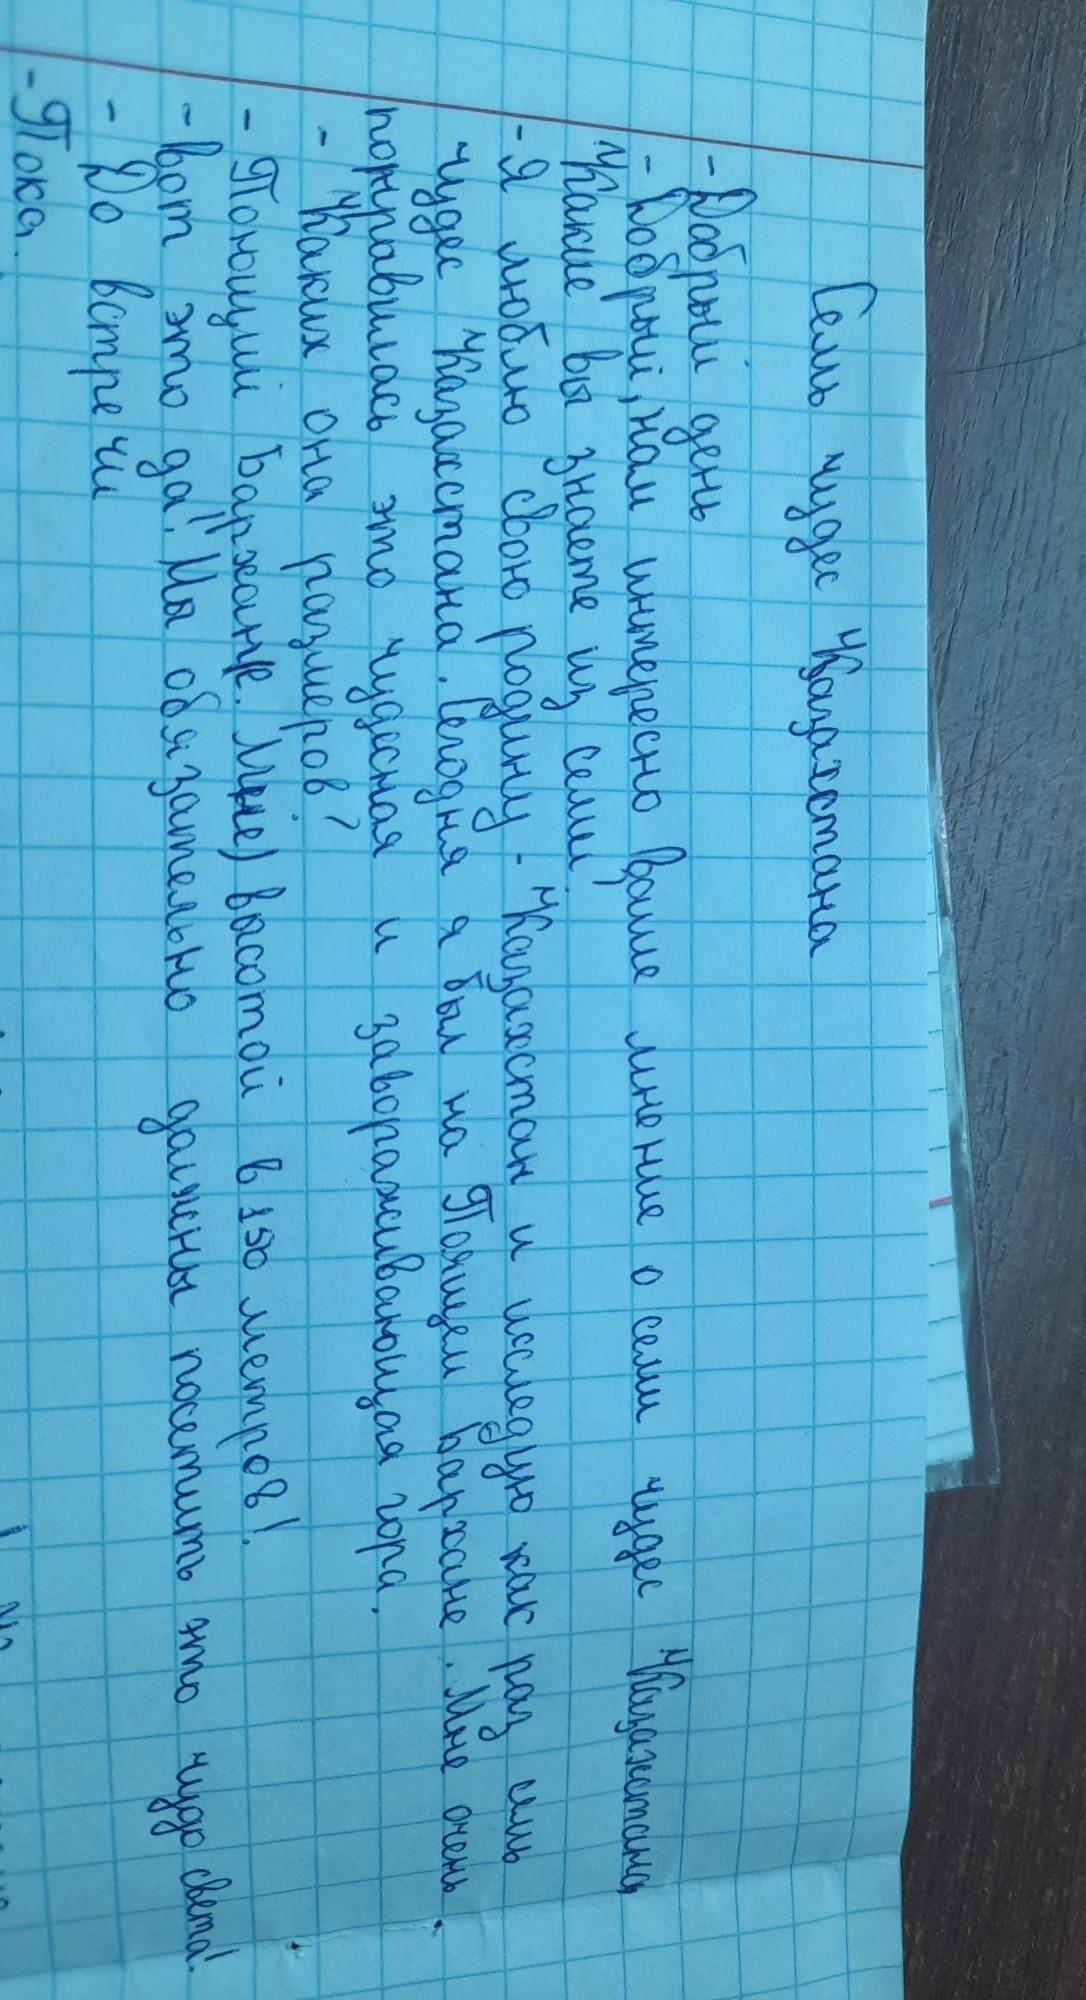 Семь чудес Казахстана
- Добрый день
- Добрый, нам интересно ваше мнение о семи чудес Казахстана,
Какие вы знаете из семи?
- Я люблю свою родину - Казахстан и исследую как раз семь
чудес Казахстана. Сегодня я был на Поящем Бархане. Мне очень
понравилась это чудесная и завораживающая гора.
- Каких она размеров?
- Поющий Бархан высотой в 150 метров!
- Вот это да!! Мы обязательно должны посетить это чудо света!
- До встречи
- Пока.